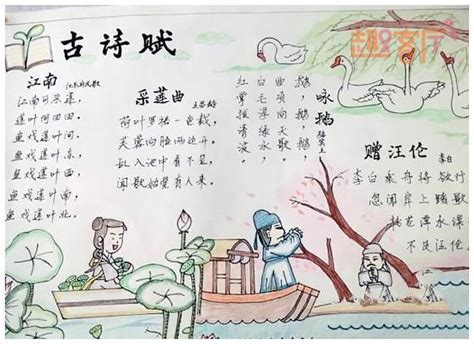 古诗赋
趣客厅
江南
江南可采莲,
莲叶何田田。
鱼戏莲叶间。
鱼戏莲叶东,
鱼戏莲叶西,
鱼戏莲叶南,
鱼戏莲叶北。
采莲曲 王昌龄
荷叶罗裙一色裁,
芙蓉向脸两边开。
乱入池中看不见,
闻歌始觉有人来。
咏鹅
骆宾王
鹅,鹅,鹅,
曲项向天歌。
白毛浮绿水,
红掌拨清波。
赠汪伦
李白
李白乘舟将欲行
忽闻岸上踏歌
桃花潭水深
不及汪伦